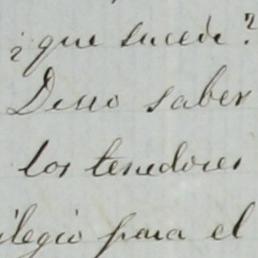 ¿que sucede?
Deseo saber
los tenedores
ilegio para el